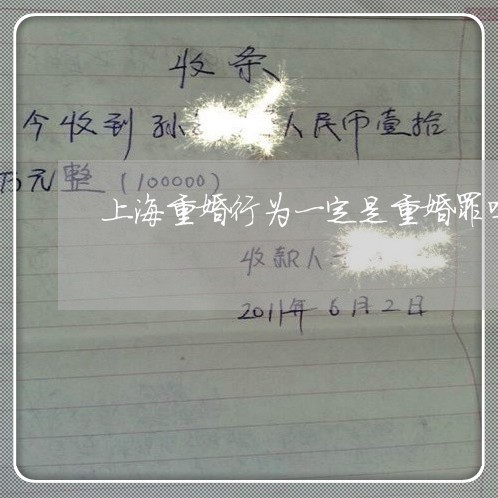 收条
今收到孙 人民币壹拾
万元整（100000）
上海重婚行为一定是重婚罪
收款人
2011年6月2日